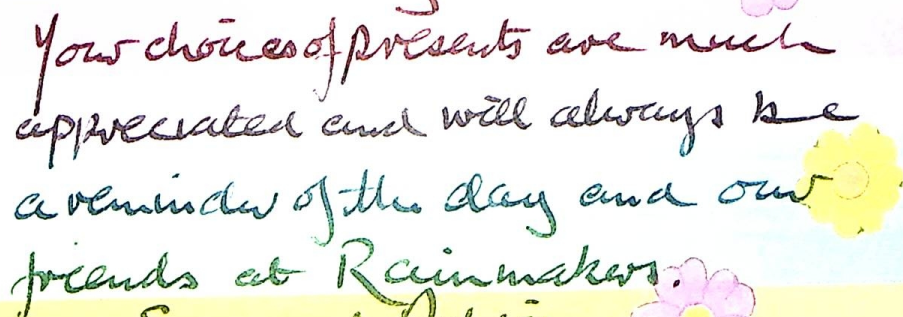 Your choices of presents are much
appreciated and will always be
a reminder of the day and our
friends at Rainmakers.